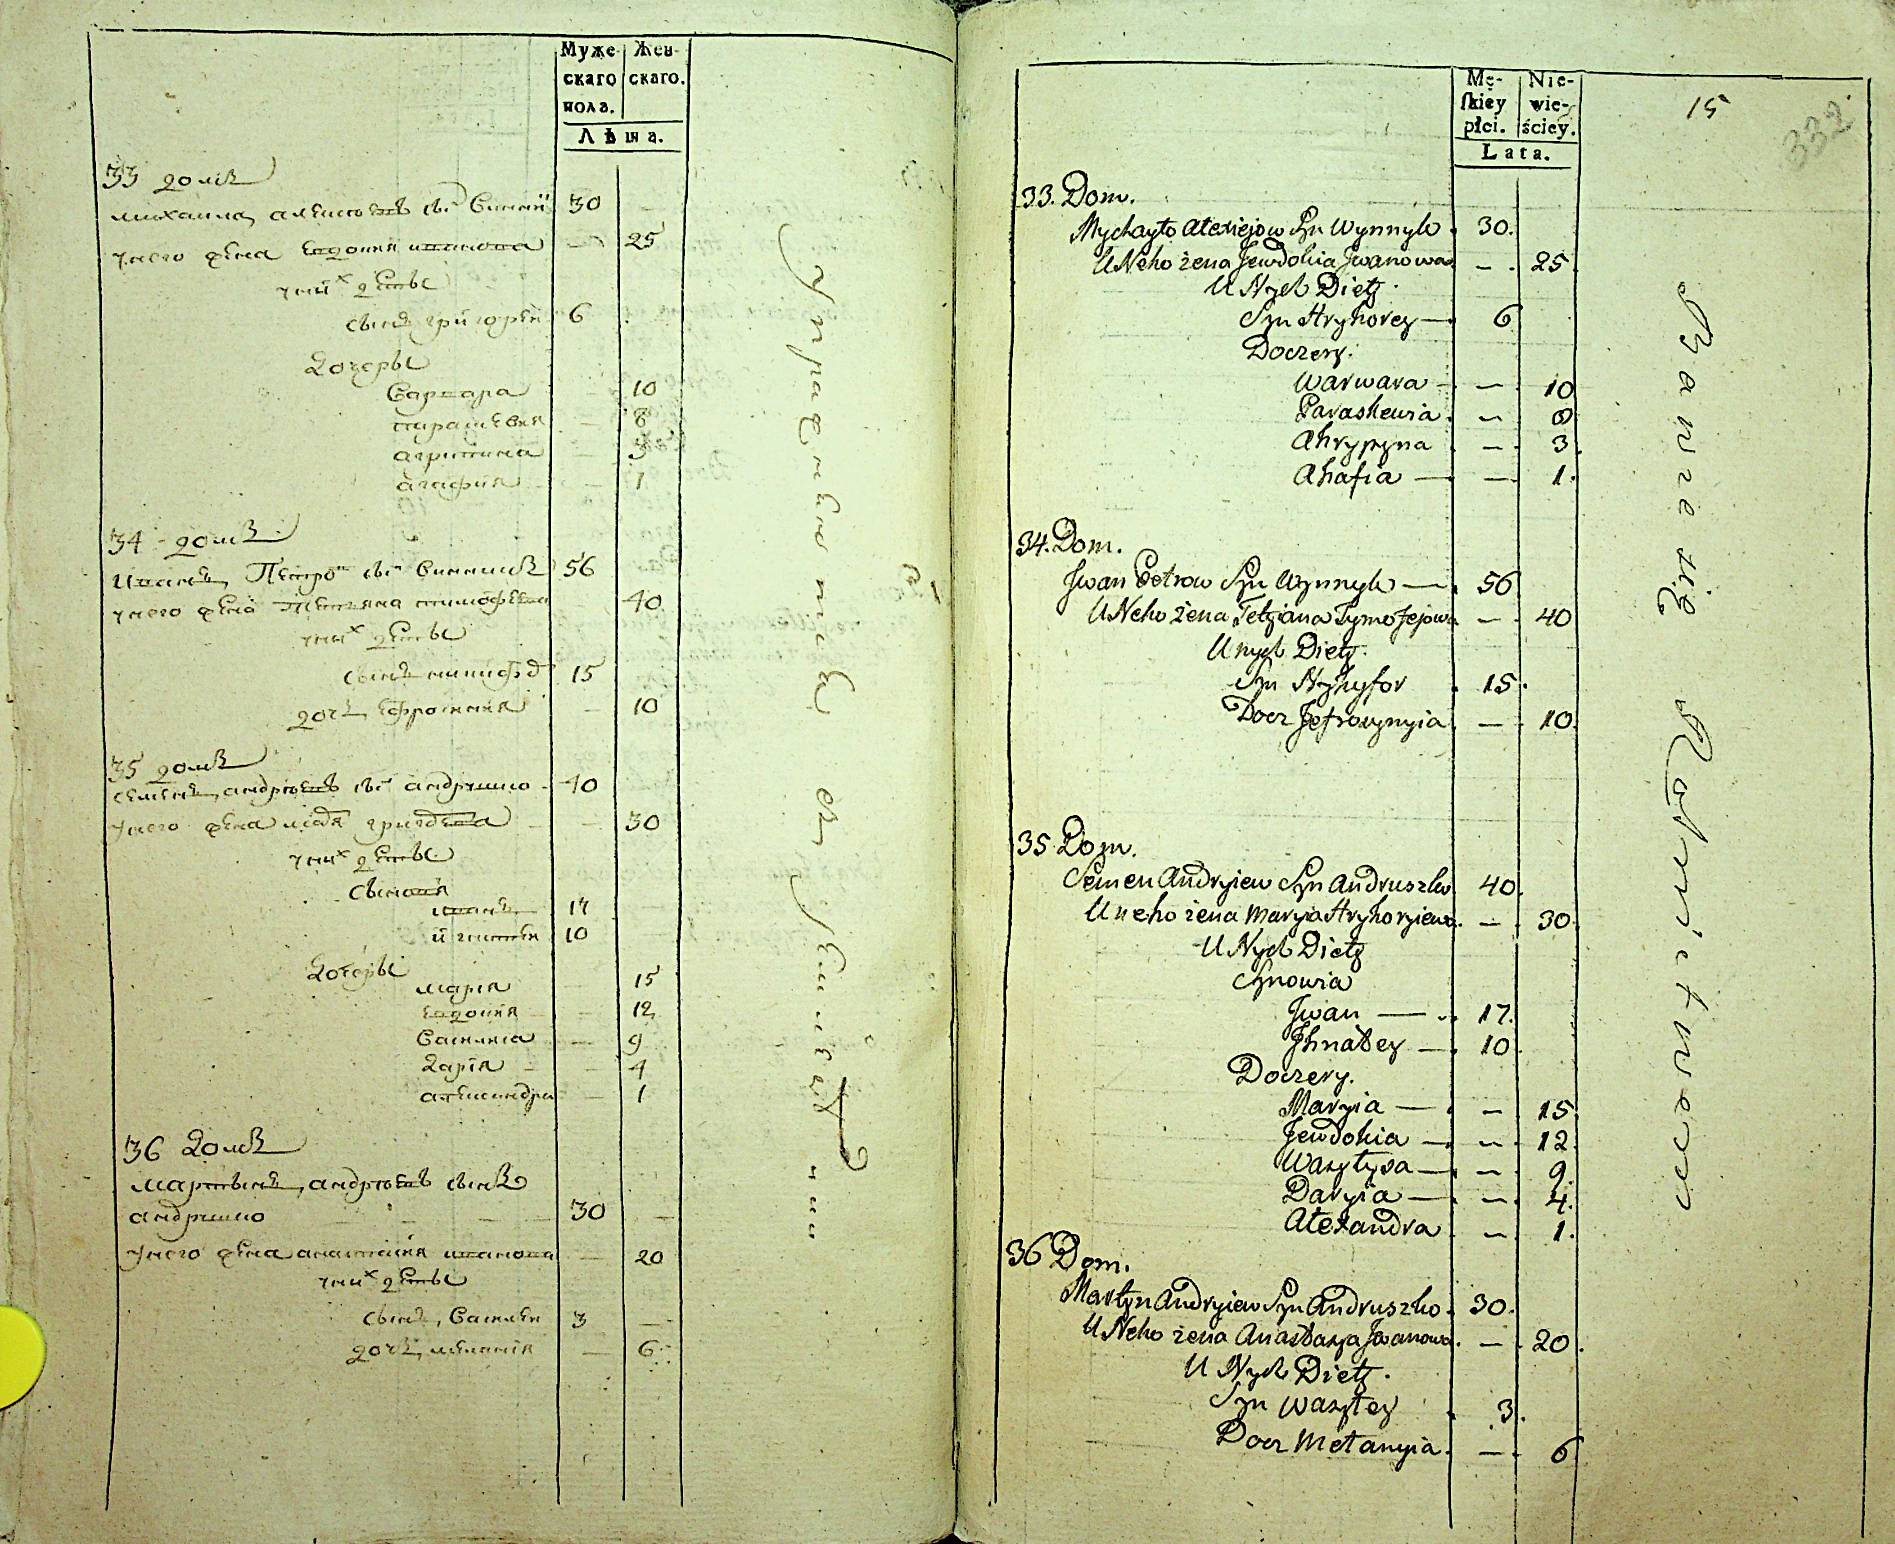 Муже-
скаго
пола.
Жен-
скаго.
Лѣта.
33 домъ
михаила алексеевъ сынъ Винник 30 —
у него жена евдокия иванова — 25
у них дѣты
сынъ григорей 6
дочеры
варвара 10
парасковия — 8
агрипина 3
агафия — 1
34 домъ
иванъ Петровъ сынъ Винникъ 56
у него жена Тетяна тимофеева 40
у них дѣты
сынъ никифор 15
дочь ефросиния — 10
35 домъ
семенъ андреевъ сынъ андрушко 40
у него жена мария григорева — 30
у них дѣты
сыновя
иванъ 17
игнатей 10
дочеры
мария 15
евдокия — 12
василиса — 9
дария — 4
александра — 1
36 домъ
мартынъ андреевъ сынъ
андрушко 30 —
у него жена анастасия иванова — 20
у них дѣты
сынъ василей 3 —
дочь мелания — 6
Упражняются в хлебопашестви
15
332
Mę-
skiey
płci.
Nie-
wie-
ściey.
Lata.
33. Dom.
Mychayło Alexiejow Syn Wynnyk 30.
U Neho żena Jewdokia Jwanowa — 25
U Nych Diety
Syn Hryhorey — 6
Doczery.
Warwara — 10
Paraskewia — 8
Ahrypyna — 3
Ahafia — 1.
34. Dom.
Jwan Petrow Syn Wynnyk — 56
U Neho żena Tetyana Tymofejowa — 40
U nych Diety
Syn Nykyfor 15
Docz Jefrosynyia — 10
35 Dom.
Semen Andryiew Syn Andruszko 40
U neho żena Maryia Hryhoryiewa — 30
U Nych Diety
Synowia
Jwan — 17.
Jhnatey — 10
Doczery.
Maryia — 15
Jewdokia — 12
Wasylysa — 9.
Daryia — 4.
Alexandra — 1.
36 Dom.
Martyn Andryiew Syn Andruszko 30.
U Neho żena Anastasya Jwanowa — 20
U Nych Diety
Syn Wasyley 3
Docz Melanyia — 6
Bawią się Rolnictwem